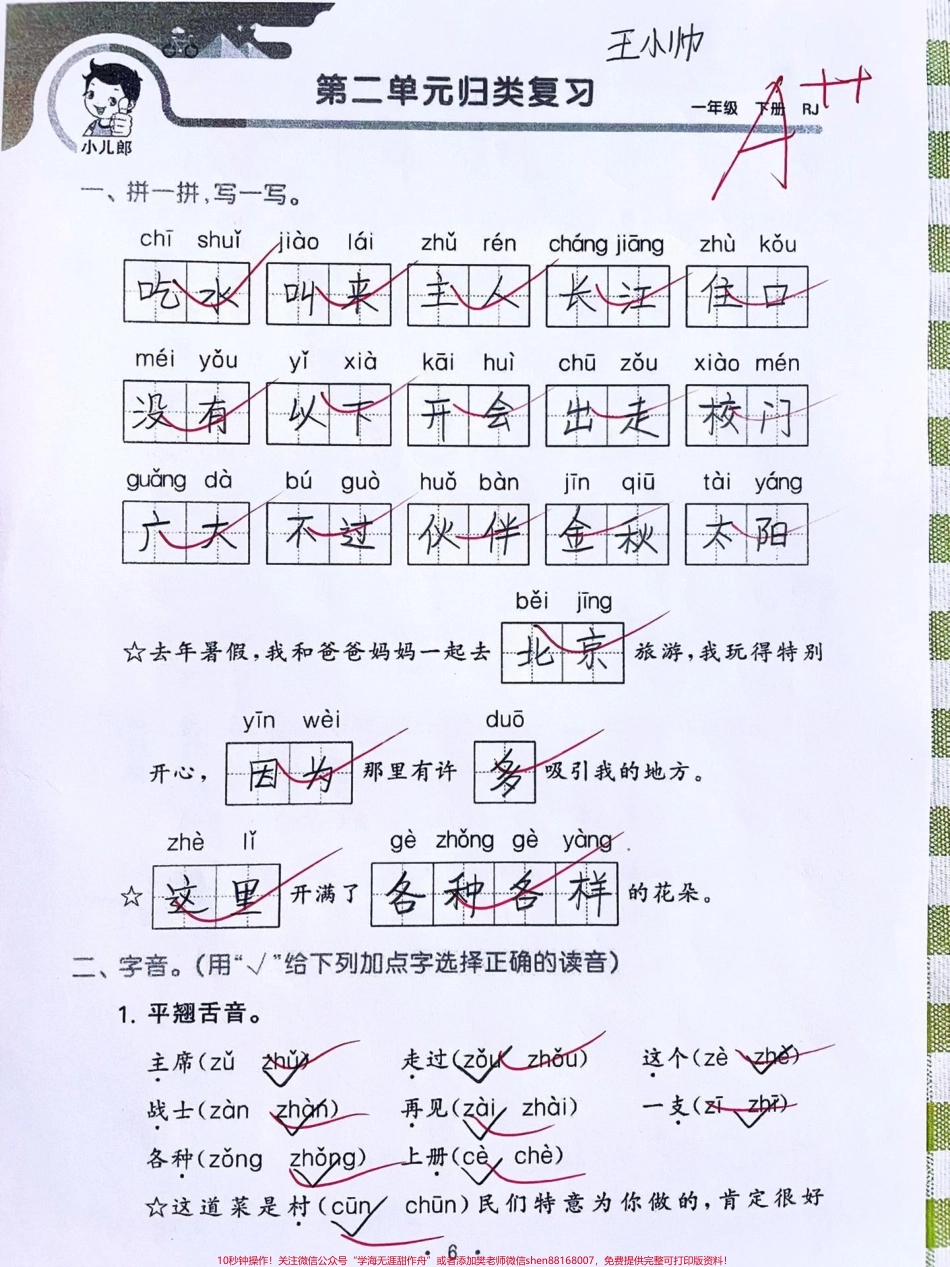 王小帅
第二单元归类复习
一年级 下册 RJ
A++
小儿郎
一、拼一拼,写一写。
chī shuǐ jiào lái zhǔ rén cháng jiāng zhù kǒu
吃水 叫来 主人 长江 住口
méi yǒu yǐ xià kāi huì chū zǒu xiào mén
没有 以下 开会 出走 校门
guǎng dà bú guò huǒ bàn jīn qiū tài yáng
广大 不过 伙伴 金秋 太阳
běi jīng
☆去年暑假,我和爸爸妈妈一起去 北京 旅游,我玩得特别
yīn wèi duō
开心, 因为 那里有许 多 吸引我的地方。
zhè lǐ gè zhǒng gè yàng
☆ 这里 开满了 各种各样 的花朵。
二、字音。(用“√”给下列加点字选择正确的读音)
1. 平翘舌音。
主席(zǔ zhǔ√) 走过(zǒu√ zhǒu) 这个(zè zhè√)
战士(zàn zhàn√) 再见(zài√ zhài) 一支(zī zhī√)
各种(zǒng zhǒng√) 上册(cè√ chè)
☆这道菜是村(cūn√ chūn)民们特意为你做的,肯定很好
·6·
10秒钟操作!关注微信公众号“学海无涯甜作舟”或者添加樊老师微信shen88168007,免费提供完整可打印版资料!